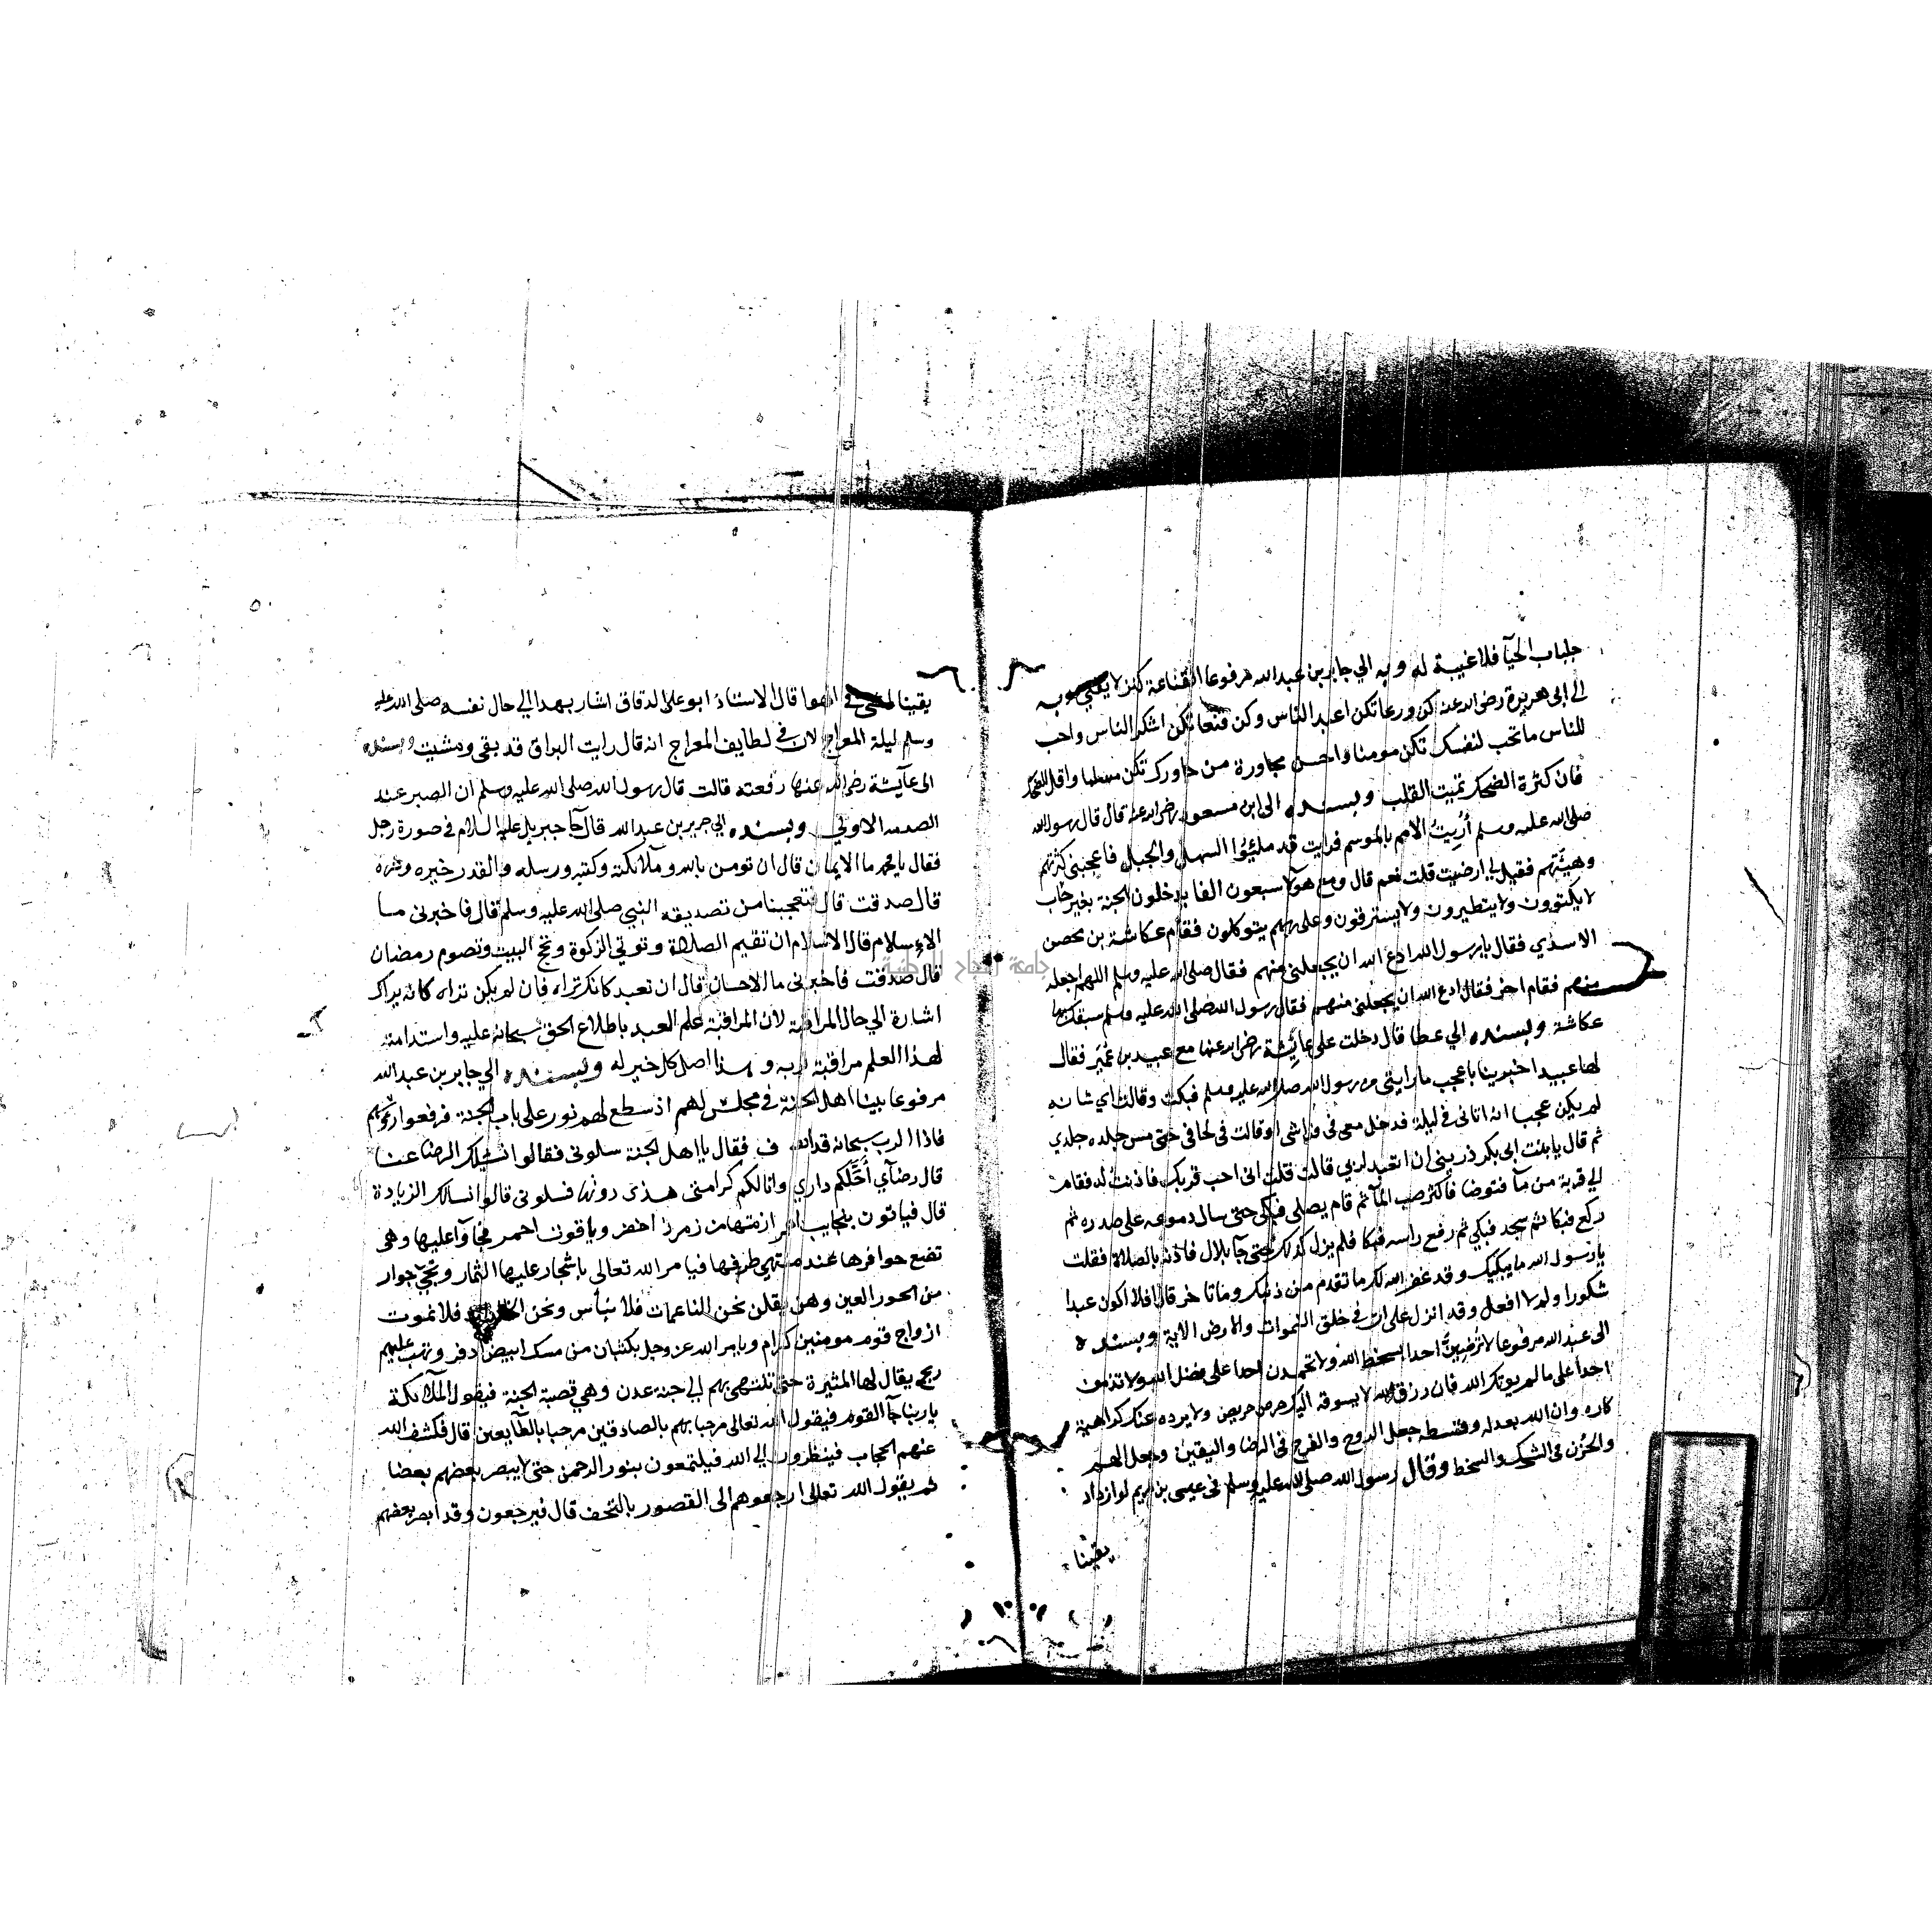 جلباب الحيآ فلا غيبة له وبه الي جابر بن عبد الله مرفوعا القناعة كنز لا يفني وبه
الي ابى هريرة رضى الله عنه كن ورعا تكن اعبد الناس وكن قنعا تكن اشكر الناس واحب
للناس ما تحب لنفسك تكن مومنا واحسن مجاورة من جاورك تكن مسلما واقل الضحك
فان كثرة الضحك تميت القلب وبسنده الى ابن مسعود رضى الله عنه قال قال رسول الله
صلى الله عليه وسلم أُرِيتُ الامم بالموسم فرايت قد ملئوا السهل والجبل فاعجبنى كثرتهم
وهيئتهم فقيل لي ارضيت قلت نعم قال ومع هولا سبعون الفا يدخلون الجنة بغير حساب
لا يكتوون ولا يتطيرون ولا يسترقون وعلى ربهم يتوكلون فقام عكاشة بن محصن
الاسدي فقال يا رسول الله ادع الله ان يجعلنى منهم فقال صلى الله عليه وسلم اللهم اجعله
منهم فقام اخر فقال ادع الله ان يجعلنى منهم فقال رسول الله صلى الله عليه وسلم سبقك بها
عكاشة وبسنده الي عطا قال دخلت على عائشة رضى الله عنها مع عبيد بن عُمَيْر فقال
لها عبيد اخبرينا باعجب ما رايتى من رسول الله صلى الله عليه وسلم فبكت وقالت اي شانه
لم يكن عجبا انه اتانى فى ليلة فدخل معى فى فراشى او قالت فى لحافى حتى مس جلده جلدي
ثم قال يا بنت ابى بكر ذرينى ان اتعبد لربي قالت قلت انى احب قربك فاذنت له فقام
الي قربة من مآ فتوضا فاكثر صب المآ ثم قام يصلى فبكى حتى سال دموعه على صدره ثم
ركع فبكا ثم سجد فبكي ثم رفع راسه فبكا فلم يزل كذلك حتى جآ بلال فاذنه بالصلاة فقلت
يا رسول الله ما يبكيك وقد غفر الله لك ما تقدم من ذنبك وما تاخر قال افلا اكون عبدا
شكورا ولم لا افعل وقد انزل على ان فى خلق السموات والارض الاية وبسنده
الى عبد الله مرفوعا لا ترضين احدا بسخط الله ولا تحمدن احدا على فضل الله ولا تذمن
احدا على ما لم يوتك الله فان رزق الله لا يسوقه اليك حرص حريص ولا يرده عنك كراهية
كاره وان الله بعدله وقسطه جعل الروح والفرح فى الرضا واليقين وجعل الهم
والحزن فى الشك والسخط وقال رسول الله صلى الله عليه وسلم فى عيسى بن مريم لو ازداد
يقينا
يقينا لمشى فى الهوا قال الاستاذ ابو على الدقاق اشار بهذا الي حال نفسه صلى الله عليه
وسلم ليلة المعراج لان في لطايف المعراج انه قال رايت البراق قد بقى ومشيت وبسنده
الى عآيشة رضى الله عنها رفعته قالت قال رسول الله صلى الله عليه وسلم ان الصبر عند
الصدمه الاولي وبسنده الي جرير بن عبد الله قال جآ جبريل عليه السلام في صورة رجل
فقال يا محمد ما الايمان قال ان تومن بالله وملآئكته وكتبه ورسله والقدر خيره وشره
قال صدقت قال فتعجبنا من تصديقه النبي صلى الله عليه وسلم قال فاخبرنى ما
الاسلام قال الاسلام ان تقيم الصلاة وتوتي الزكوة وتحج البيت وتصوم رمضان
قال صدقت فاخبرنى ما الاحسان قال ان تعبد كانك تراه فان لم يكن تراه كانه يراك
اشارة الي حال المراقبة لان المراقبة علم العبد باطلاع الحق سبحانه عليه واستدامته
لهذا العلم مراقبة لربه وهذا اصل كل خير له وبسنده الي جابر بن عبد الله
مرفوعا بينا اهل الجنة في مجلس لهم اذ سطع لهم نور على باب الجنة فرفعوا رؤسهم
فاذا الرب سبحانه قد اشرف فقال يا اهل الجنة سلونى فقالوا نسالك الرضا عنا
قال رضآي أحَلَّكم داري وانالكم كرامتى هذى دونها فسلونى قالوا نسالك الزيادة
قال فياتون بنجايب ازمتها من زمرذ اخضر وياقوت احمر فجآوا عليها وهى
تضع حوافرها عند منتهي طرفها فيامر الله تعالى باشجار عليها الثمار وتجئ جوار
من الحور العين وهن يقلن نحن الناعمات فلا نبأس ونحن فلا نموت
ازواج قوم مومنين كرام ويامر الله عز وجل بكثبان من مسك ابيض دفر وتهب عليهم
ريح يقال لها المثيرة حتى تنتهى بهم الي جنة عدن وهي قصبة الجنة فيقول الملآئكة
يا ربنا جآ القوم فيقول الله تعالى مرحبا بهم بالصادقين مرحبا بالطآيعين قال فكشف الله
عنهم الحجاب فينظرون الي الله فيتمتعون بنور الرحمن حتى لا يبصر بعضهم بعضا
ثم يقول الله تعالى ارجعوهم الى القصور بالتحف قال فيرجعون وقد ابصر بعضهم
جامعة النجاح الوطنية